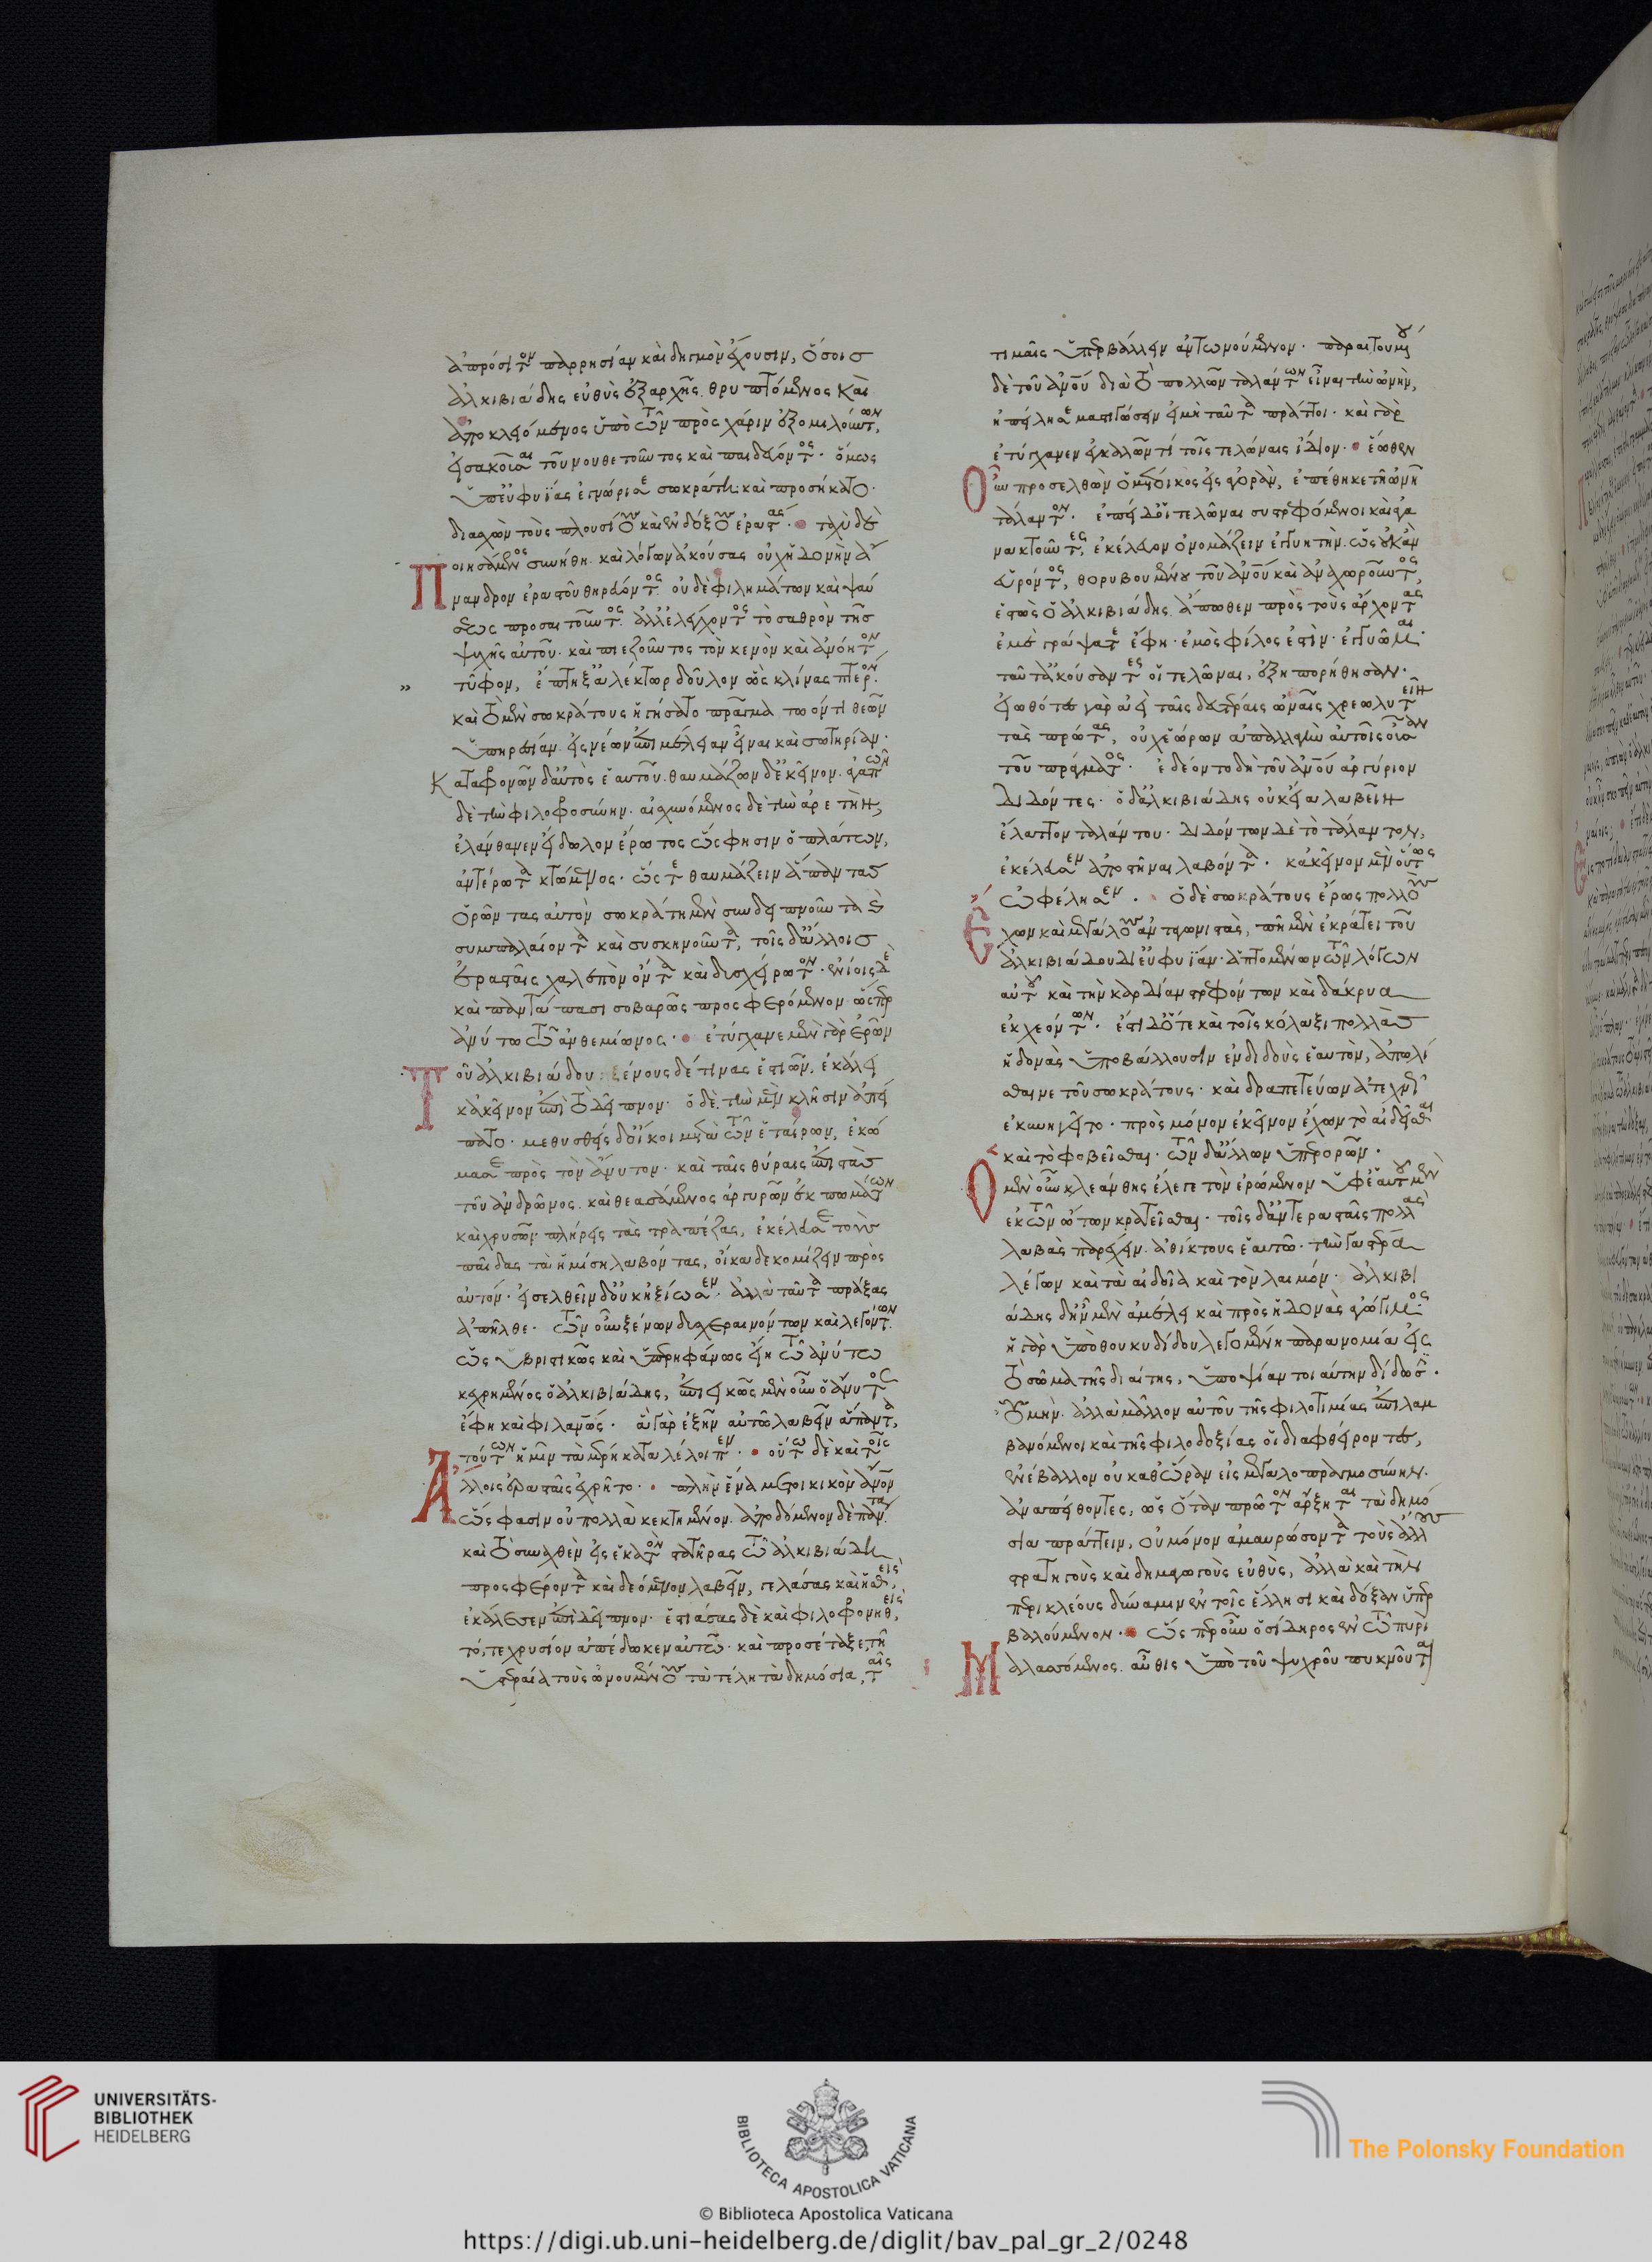 ἀπρόσιτον παρρησίαν καὶ δηγμὸν ἔχουσιν, ὅσοις
ἀλκιβιάδης εὐθὺς ἐξαρχῆς θρυπτόμενος καὶ
ἀποκλειόμενος ὑπὸ τῶν πρὸς χάριν ἐξομιλούντων,
εἰσακοῦσαι τοῦ νουθετοῦντος καὶ παιδεύοντος. ὅμως
ὑπευφυΐας ἐγνώρισε σωκράτη· καὶ προσήκατο.
διασχὼν τοὺς πλουσίους καὶ ἐνδόξους ἐραστάς. ταχὺ δὲ
Ποιησάμενος συνήθη. καὶ λόγων ἀκούσας οὐχ ἡδονὴν ἄ
νανδρον ἐραστοῦ θηρεύοντος. οὐδὲ φιλημάτων καὶ ψαύ
σεως προσαιτοῦντος. ἀλλἐλέγχοντος τὸ σαθρὸν τῆς
ψυχῆς αὐτοῦ. καὶ πιεζοῦντος τὸν κενὸν καὶ ἀνόητον
τῦφον, ἔπτηξἀλέκτωρ δοῦλον ὣς κλίνας πτερόν.
καὶ τὸ μὲν σωκράτους ἡγήσατο πρᾶγμα τω όντι θεῶν
ὑπηρεσίαν εἰς νέων ἐπιμέλειαν εἶναι καὶ σωτηρίαν.
Καταφρονῶν δαὐτὸς ἑαυτοῦ. θαυμάζων δἐκεῖνον. ἀγαπῶν
δὲ τὴν φιλοφροσύνην. αἰσχυνόμενος δὲ τὴν ἀρετὴν,
ἐλάνθανεν εἴδωλον ἔρωτος ὥς φησιν ὁ πλάτων,
ἀντέρωτα κτώμενος. ὥς τε θαυμάζειν ἅπαντας
ὁρῶντας αὐτὸν σωκράτη μὲν συνδειπνοῦντα &
συμπαλαίοντα καὶ συσκηνοῦντα, τοῖς δἄλλοις
ἐρασταῖς χαλεπὸν ὄντα καὶ δυσχείρωτον. ἐνίοις δὲ
καὶ παντάπασι σοβαρῶς προσφερόμενον. ὥσπερ
ἀνύτω τῶ ἀνθεμίωνος. ἐτύγχανε μὲν γὰρ ἐρῶν
Τοῦ ἀλκιβιάδου· ξένους δέ τινας ἑστιῶν, ἐκάλει
κἀκεῖνον ἐπὶ τὸ δεῖπνον. ὁ δὲ, τὴν μὲν κλῆσιν ἀπεί
πατο. μεθυσθεὶς δοἴκοι μετὰ τῶν ἑταίρων, ἐκώ
μασε πρὸς τὸν ἄνυτον. καὶ ταῖς θύραις ἐπιστὰς
τοῦ ἀνδρῶνος. καὶ θεασάμενος ἀργυρῶν ἐκπωμάτων
καὶ χρυσῶν πλήρεις τὰς τραπέζας, ἐκέλευσε τοὺς
παῖδας τὰ ἡμίση λαβόντας, οἴκαδε κομίζειν πρὸς
αὐτόν. εἰσελθεῖν δοὐκ ἠξίωσεν. ἀλλὰ ταῦτα πράξας
ἀπῆλθε. τῶν οὖν ξένων δυσχεραινόντων καὶ λεγόντων
ὡς ὑβριστικῶς καὶ ὑπερηφάνως εἴη τῶ ἀνύτω
κεχρημένος ὁ ἀλκιβιάδης, ἐπιεικῶς μὲν οὖν ὁ ἄνυτος
ἔφη καὶ φιλανθρώπως. ἃ γὰρ ἐξῆν αὐτῶ λαβεῖν ἅπαντα,
τούτων ἡμῖν τὰ μέρη καταλέλοιπεν. οὕτω δὲ καὶ τοῖς
Ἄλλοις ἐρασταῖς ἐχρῆτο. πλὴν ἕνα μετοικικὸν ἄνθρωπον
ὥς φασιν οὐ πολλὰ κεκτημένον. ἀποδόμενον δὲ πάντα
καὶ τὸ συναχθὲν εἰς ἑκατὸν στατῆρας τῶ ἀλκιβιάδη
προσφέροντα καὶ δεόμενον λαβεῖν, γελάσας καὶ ἡσθεὶς,
ἐκάλεσεν ἐπὶ δεῖπνον. ἑστιάσας δὲ καὶ φιλοφρονηθεὶς,
τό, τε χρυσίον ἀπέδωκεν αὐτῶ. καὶ προσέταξε, τῆ
ὑστεραία τοὺς ὠνουμένους τὰ τέλη τὰ δημόσια, ταῖς
τιμαῖς ὑπερβάλλειν ἀντωνούμενον. παραιτουμένου
δὲ τοῦ ἀνθρώπου διὰ τὸ πολλῶν ταλάντων εἶναι τὴν ὠνὴν,
ἠπείλησε μαστιγώσειν εἰ μὴ ταῦτα πράττοι. καὶ γὰρ
ἐτύγχανεν ἐγκαλῶν τί τοῖς τελώναις ἴδιον. ἕωθεν
Οὖν προσελθὼν ὁ μέτοικος εἰς ἀγορὰν, ἐπέθηκε τῆ ὠνῆ
τάλαντον. ἐπεὶ δοἱ τελῶναι συστρεφόμενοι καὶ ἀγα
νακτοῦντες, ἐκέλευον ὀνομάζειν ἐγγυητὴν. ὡς οὐκ ἂν
εὑρόντος, θορυβουμένου τοῦ ἀνθρώπου καὶ ἀναχωροῦντος,
ἑστὼς ὁ ἀλκιβιάδης. ἄπωθεν πρὸς τοὺς ἄρχοντας
ἐμὲ γράψατε ἔφη. ἐμὸς φίλος ἐστὶν. ἐγγυῶμαι.
τοῦτἀκούσαντες οἱ τελῶναι, ἐξηπορήθησαν.
εἰωθότες γὰρ ἀεὶ ταῖς δευτέραις ὠναῖς χρεωλυτεῖν
τὰς πρώτας, οὐχ ἑώρων ἀπαλλαγὴν αὐτοῖς οὖσαν
τοῦ πράγματος. ἐδέοντο δὴ τοῦ ἀνθρώπου ἀργύριον
διδόντες. ὁ δἀλκιβιάδης οὐκ εἴα λαβεῖν
ἔλαττον ταλάντου. διδόντων δὲ τὸ τάλαντον,
ἐκέλευσεν ἀποστῆναι λαβόντα. κἀκεῖνον μὲν οὕτως
ὠφέλησεν. ὁ δὲ σωκράτους ἔρως πολλοὺς
Ἔχων καὶ μεγάλους ἀνταγωνιστὰς, πῆ μὲν ἐκράτει τοῦ
ἀλκιβιάδου διεὐφυΐαν. ἁπτομένων τῶν λόγων
αὐτοῦ καὶ τὴν καρδίαν στρεφόντων καὶ δάκρυα
ἐκχεόντων. ἔστι δὅτε καὶ τοῖς κόλαξι πολλὰς
ἡδονὰς ὑποβάλλουσιν ἐνδιδοὺς ἑαυτὸν, ἀπωλί
σθαινε τοῦ σωκράτους. καὶ δραπετεύων ἀτεχνῶς
ἐκυνηγεῖτο. πρὸς μόνον ἐκεῖνον ἔχων τὸ αἰδεῖσθαι
καὶ τὸ φοβεῖσθαι. τῶν δἄλλων ὑπερορῶν.
Ὁ μὲν οὖν κλεάνθης ἔλεγε τὸν ἐρώμενον ὑφἑαυτοῦ μὲν
ἐκ τῶν ὤτων κρατεῖσθαι. τοῖς δἀντερασταῖς πολλὰς
λαβὰς παρέχειν. ἀθίκτους ἑαυτῶ. τὴν γαστέρα
λέγων καὶ τὰ αἰδοῖα καὶ τὸν λαιμόν. ἀλκιβι
άδης δἦν μὲν ἀμέλει καὶ πρὸς ἡδονὰς ἀγώγιμος.
ἡ γὰρ ὑπὸ θουκυδίδου λεγομένη παρανομία εἰς
τὸ σῶμα τῆς διαίτης, ὑποψίαν τοιαύτην δίδωσιν.
οὐ μὴν. ἀλλὰ μᾶλλον αὐτοῦ τῆς φιλοτιμίας ἐπιλαμ
βανόμενοι καὶ τῆς φιλοδοξίας οἱ διαφθείροντες,
ἐνέβαλλον οὐ καθὥραν εἰς μεγαλοπραγμοσύνην.
ἀναπείθοντες, ὡς ὅταν πρῶτον ἄρξηται τὰ δημό
σια πράττειν, οὐ μόνον ἀμαυρώσοντα τοὺς ἄλλους
στρατηγοὺς καὶ δημαγωγοὺς εὐθὺς, ἀλλὰ καὶ τὴν
περικλέους δύναμιν ἐν τοῖς ἕλλησι καὶ δόξαν ὑπερ
βαλούμενον. ὥσπερ οὖν ὁ σίδηρος ἐν τῶ πυρὶ
Μαλασσόμενος. αὖθις ὑπὸ τοῦ ψυχροῦ πυκνοῦται
UNIVERSITÄTS-
BIBLIOTHEK
HEIDELBERG
BIBLIOTECA APOSTOLICA VATICANA
The Polonsky Foundation
© Biblioteca Apostolica Vaticana
https://digi.ub.uni-heidelberg.de/diglit/bav_pal_gr_2/0248